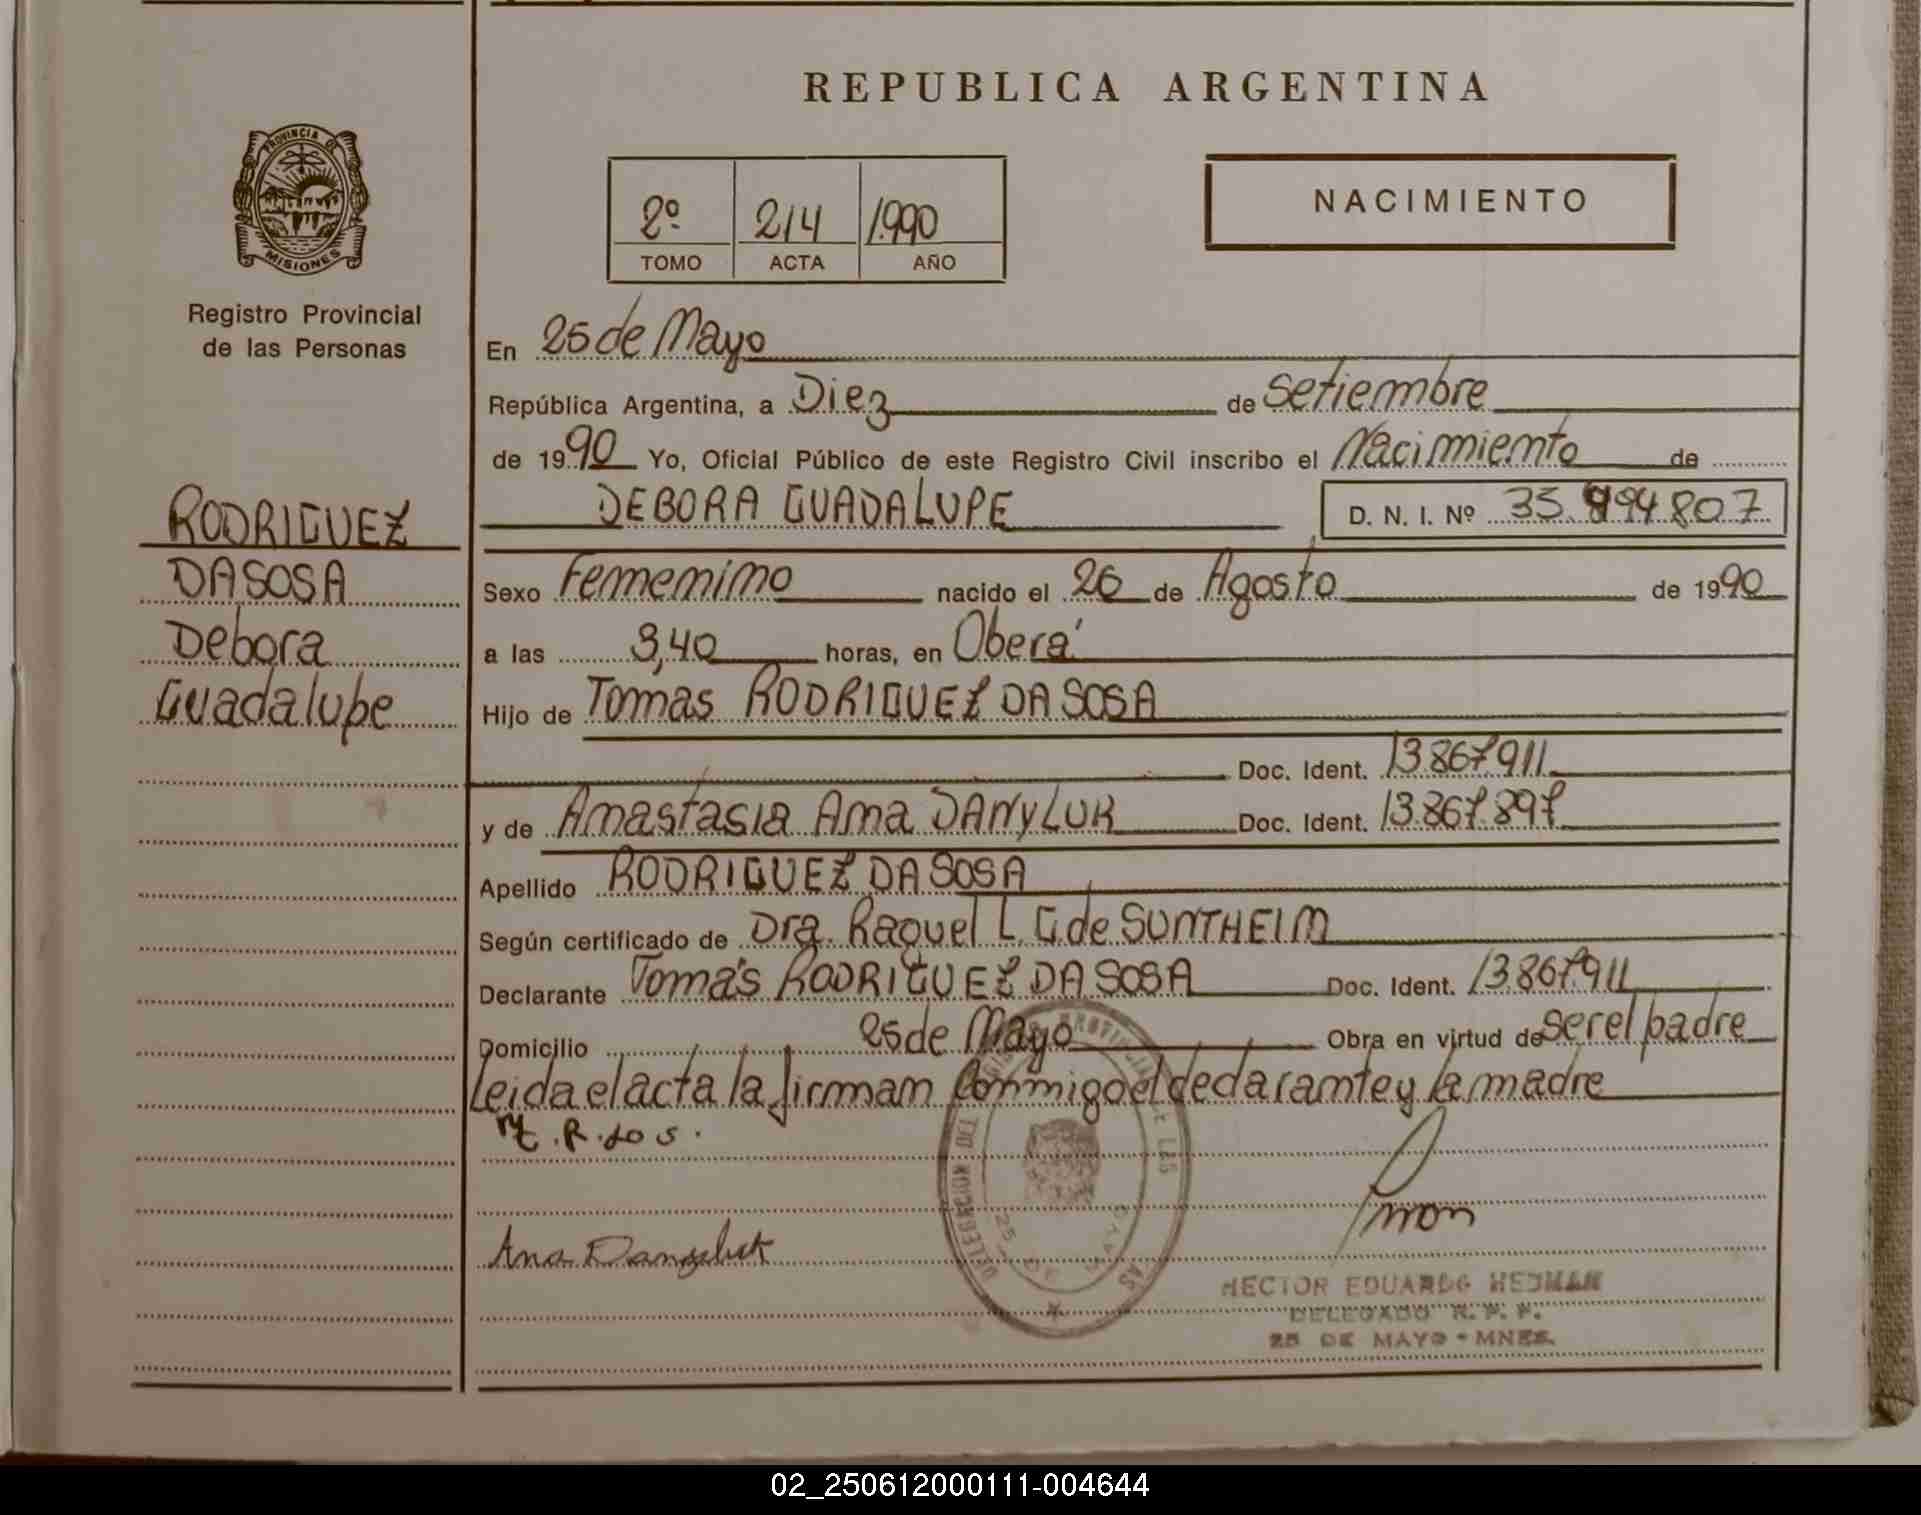 REPUBLICA ARGENTINA
PROVINCIA DE
MISIONES
Registro Provincial
de las Personas
2º 214 1990
TOMO ACTA AÑO
NACIMIENTO
RODRIGUEZ
DA SOSA
Debora
Guadalupe
En 25 de Mayo
República Argentina, a Diez de Setiembre
de 1990 Yo, Oficial Público de este Registro Civil inscribo el Nacimiento de
DEBORA GUADALUPE D. N. I. Nº 35.994.807
Sexo Femenino nacido el 26 de Agosto de 1990
a las 3,40 horas, en Oberá
Hijo de Tomas RODRIGUEZ DA SOSA
Doc. Ident. 13.867.911
y de Anastasia Ana DANYLUK Doc. Ident. 13.867.897
Apellido RODRIGUEZ DA SOSA
Según certificado de Dra. Raquel L. G. de SUNTHEIM
Declarante Tomás RODRIGUEZ DA SOSA Doc. Ident. 13.867.911
Domicilio 25 de Mayo Obra en virtud de ser el padre
Leida el acta la firman conmigo el declarante y la madre
Ana Danyluk
HECTOR EDUARDO HEDMAN
DELEGADO R. P. P.
25 DE MAYO - MNES.
02_250612000111-004644